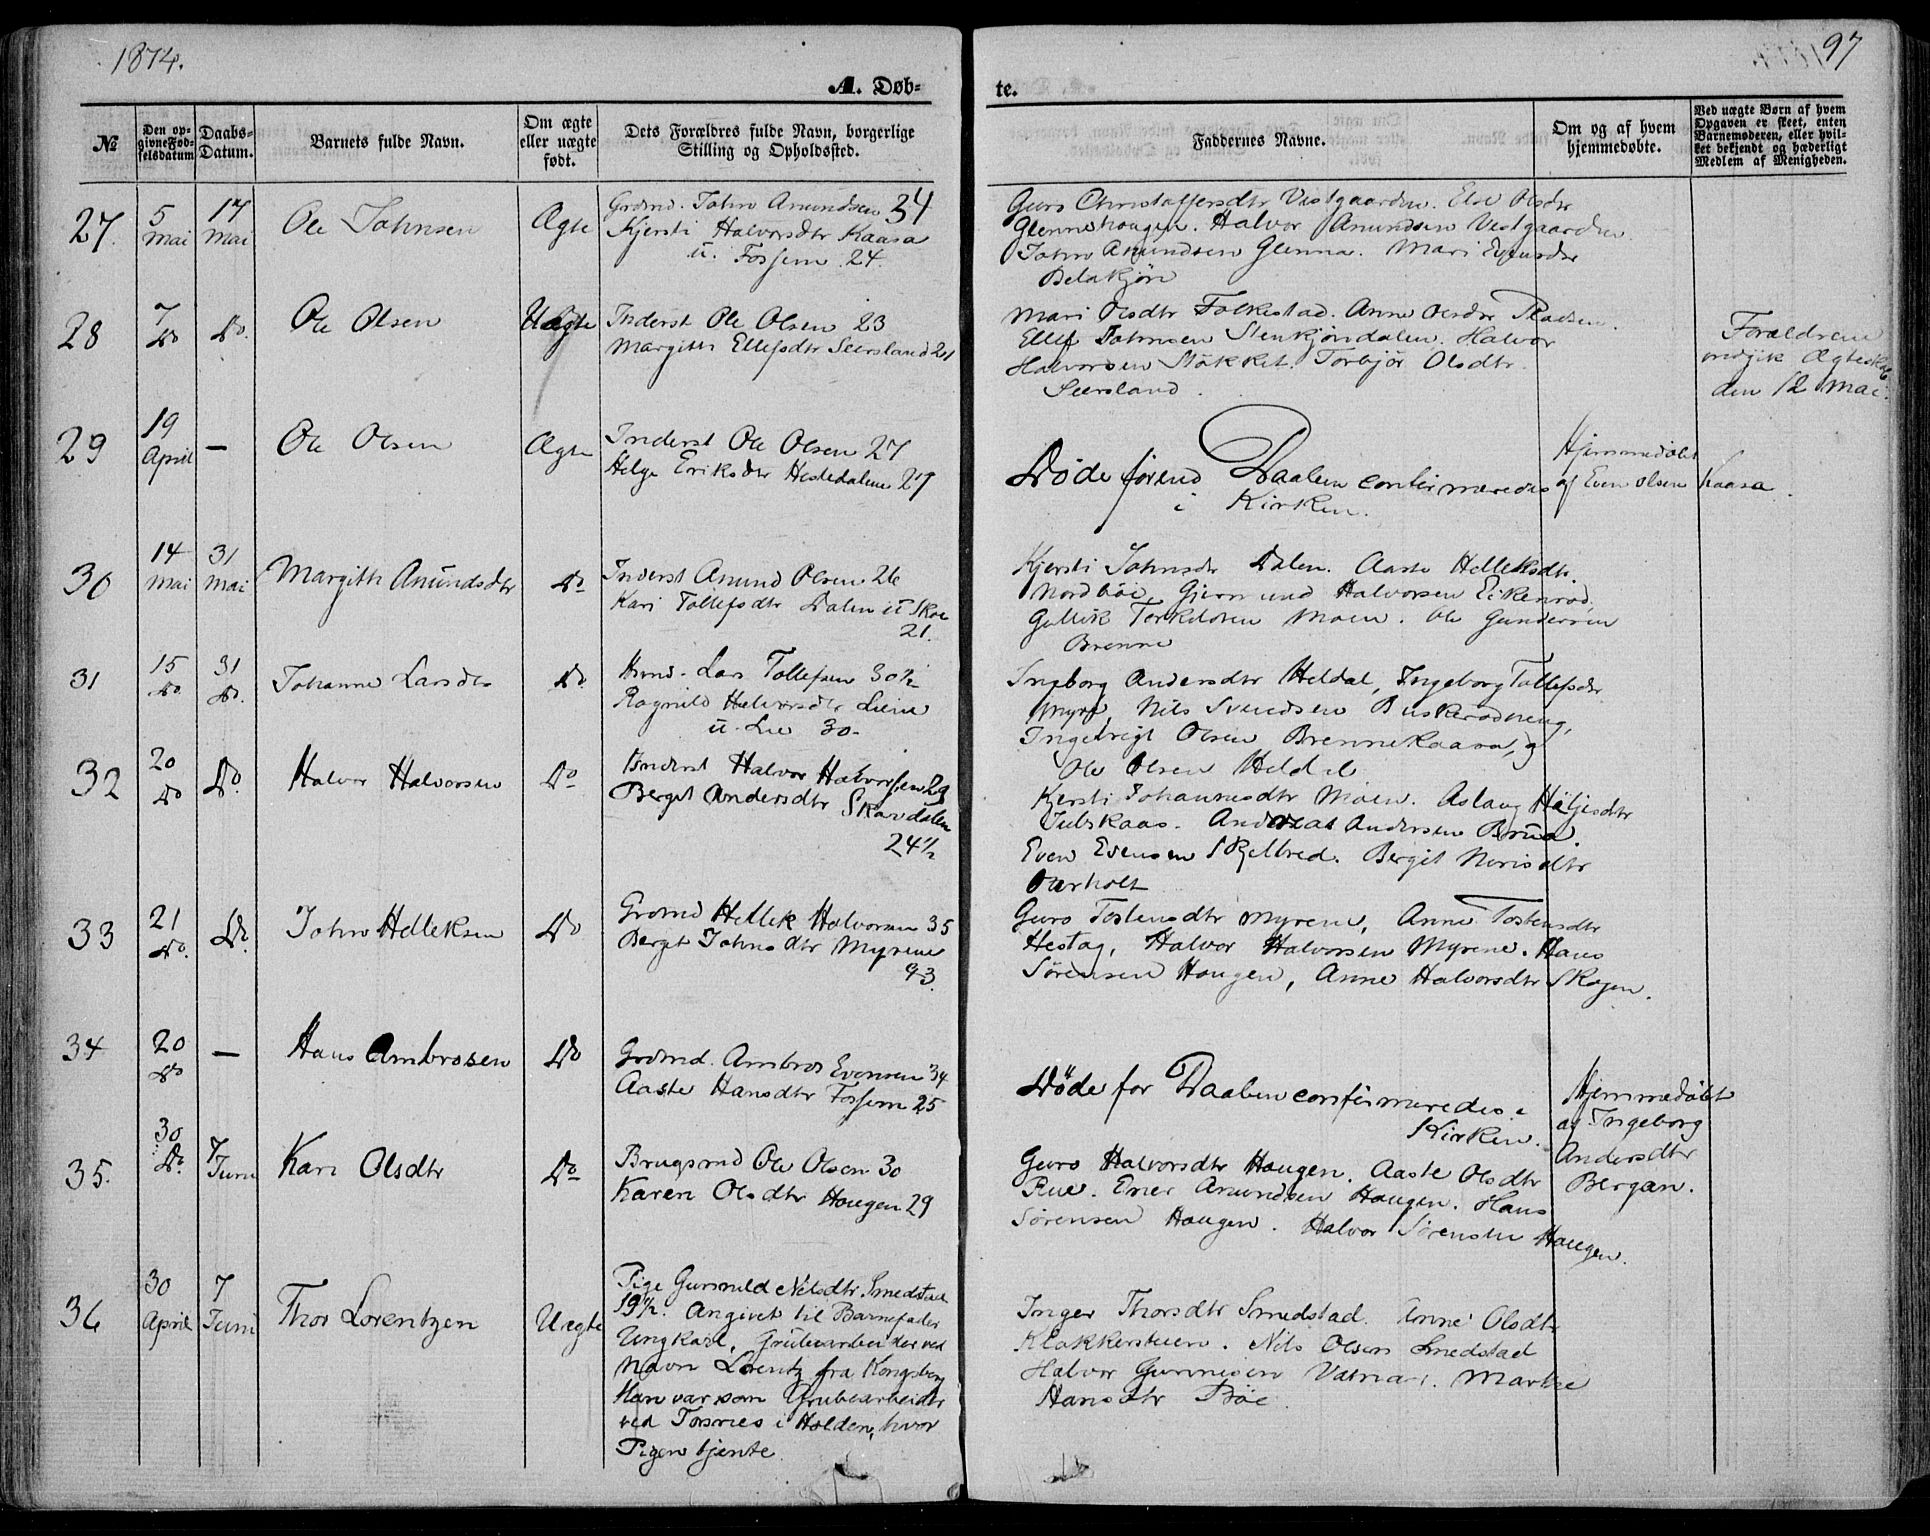 1874.
97
A. Døb-
te.
No
Den op-
givne Fød-
felsdatum
Daabs-
Datum.
Barnets fulde Navn.
Om ægte
eller uægte
født.
Dets Forældres fulde Navn, borgerlige
Stilling og Opholdssted.
Faddernes Navne.
Om og af hvem
hjemmedøbte.
Ved uægte Børn af hvem
Opgaven er skeet, enten
Barnemoderen, eller hvil-
ket bekjendt og hæderligt
Medlem af Menigheden.
27.
5
Mai
17
Mai
Ole Johnsen
Ægte
Grdmd. John Anundsen 34
Kjersti Halvorsdtr Kaasa
u. Fossem 24.
Guro Christoffersdtr Vestgaarden. Else Olsdtr
Glennehougen. Halvor Anundsen Vestgaarden
John Anundsen Glenna. Mari
28
7
Do
Do.
Ole Olsen
Uægte
Inderst Ole Olsen 23
Margith Ellefsdtr Seersland 21
Mari Olsdtr Folkestad. Anne Olsdtr Pladsen.
Ellef Johnsen Stenkjøndalen. Halvor
Halvorsen Støkket. Torbjør Olsdtr
Seersland.
Forældrene
indgik Ægteskab
den 12 Mai.
29
19
April
—
Ole Olsen
Ægte
Inderst Ole Olsen 27
Helge Eriksdtr Hestedalene 27
Døde førend Daaben confirmeredes
i Kirken.
Hjemmedøbt
af Even Olsen Kaasa.
30
14
Mai
31
Mai
Margith Anundsdtr
Do
Inderst Anund Olsen 26
Kari Tollefsdtr Dalen u Skoe
21.
Kjersti Johnsdtr Dalen. Aaste Helleksdtr.
Nordbøe, Gjermund Halvorsen Eikenrod,
Gullik Torkildsen Moen. Ole Gundersen
Brenne
31
15
Do
31
Do.
Johanne Larsdtr
Do.
Husmd. Lars Tollefsen 30½
Ragnild Halvorsdtr Liene
u. Lie 30.
Ingeborg Andersdtr Heldal, Ingeborg Tollefsdtr
Myre, Nils Svendsen Buskerødneng,
Ingebrigt Olsen Brennekaasa, g
Ole Olsen Heldal
32
20
Do
Do.
Halvor Halvorsen
Do
Inderst Halvor Halvorsen 29
Berget Andersdtr Skardalen
24½
Kjersti Johannesdtr Moen. Aslaug Høljesdtr
Julskaas. Andreas Andersen Brua.
Even Evensen Skjelbred. Bergit Norisdtr
Aarholt
33
21
Do.
Do.
John Helleksen
Do
Grdmd Hellek Halvorsen 35
Berget Johnsdtr Myrene
43.
Guro Tostensdtr Myrene, Anne Tostensdtr
Hestag, Halvor Halvorsen Myrene. Hans
Sørensen Hougen, Anne Halvorsdtr Skogen.
34
20
Do
—
Hans Ambrosen
Do
Grdmd. Ambros Evensen 34
Aaste Hansdtr Fossem 25
Døde for Daaben confirmeredes i
Kirken.
Hjemmedøbt
af Ingeborg
Andersdtr
Bergan.
35.
30
Do.
7
Juni
Kari Olsdtr
Do
Brugsmd Ole Olsen 30
Karen Olsdtr Hougen 29
Guro Halvorsdtr Hougen. Aaste Olsdtr
Rue. Ener Anundsen Hougen. Hans
Sørensen Hougen. Halvor Sørensen Hougen.
36
30
April
7
Juni
Thor Lorentzen
Uægte
Pige Gunnild Nilsdtr Smedstad
19½. Angivet til Barnefader
Ungkarl, Grubearbeider ved
Navn Lorentz fra Kongsberg
Han var som Grubearbeider
ved Tosnæs i Holden, hvor
Pigen tjente.
Inger Thorsdtr Smedstad. Anne Olsdtr
Klakkersteien. Nils Olsen Smedstad
Halvor Gunnisen Valnar. Marthe
Hansdtr Bøe.